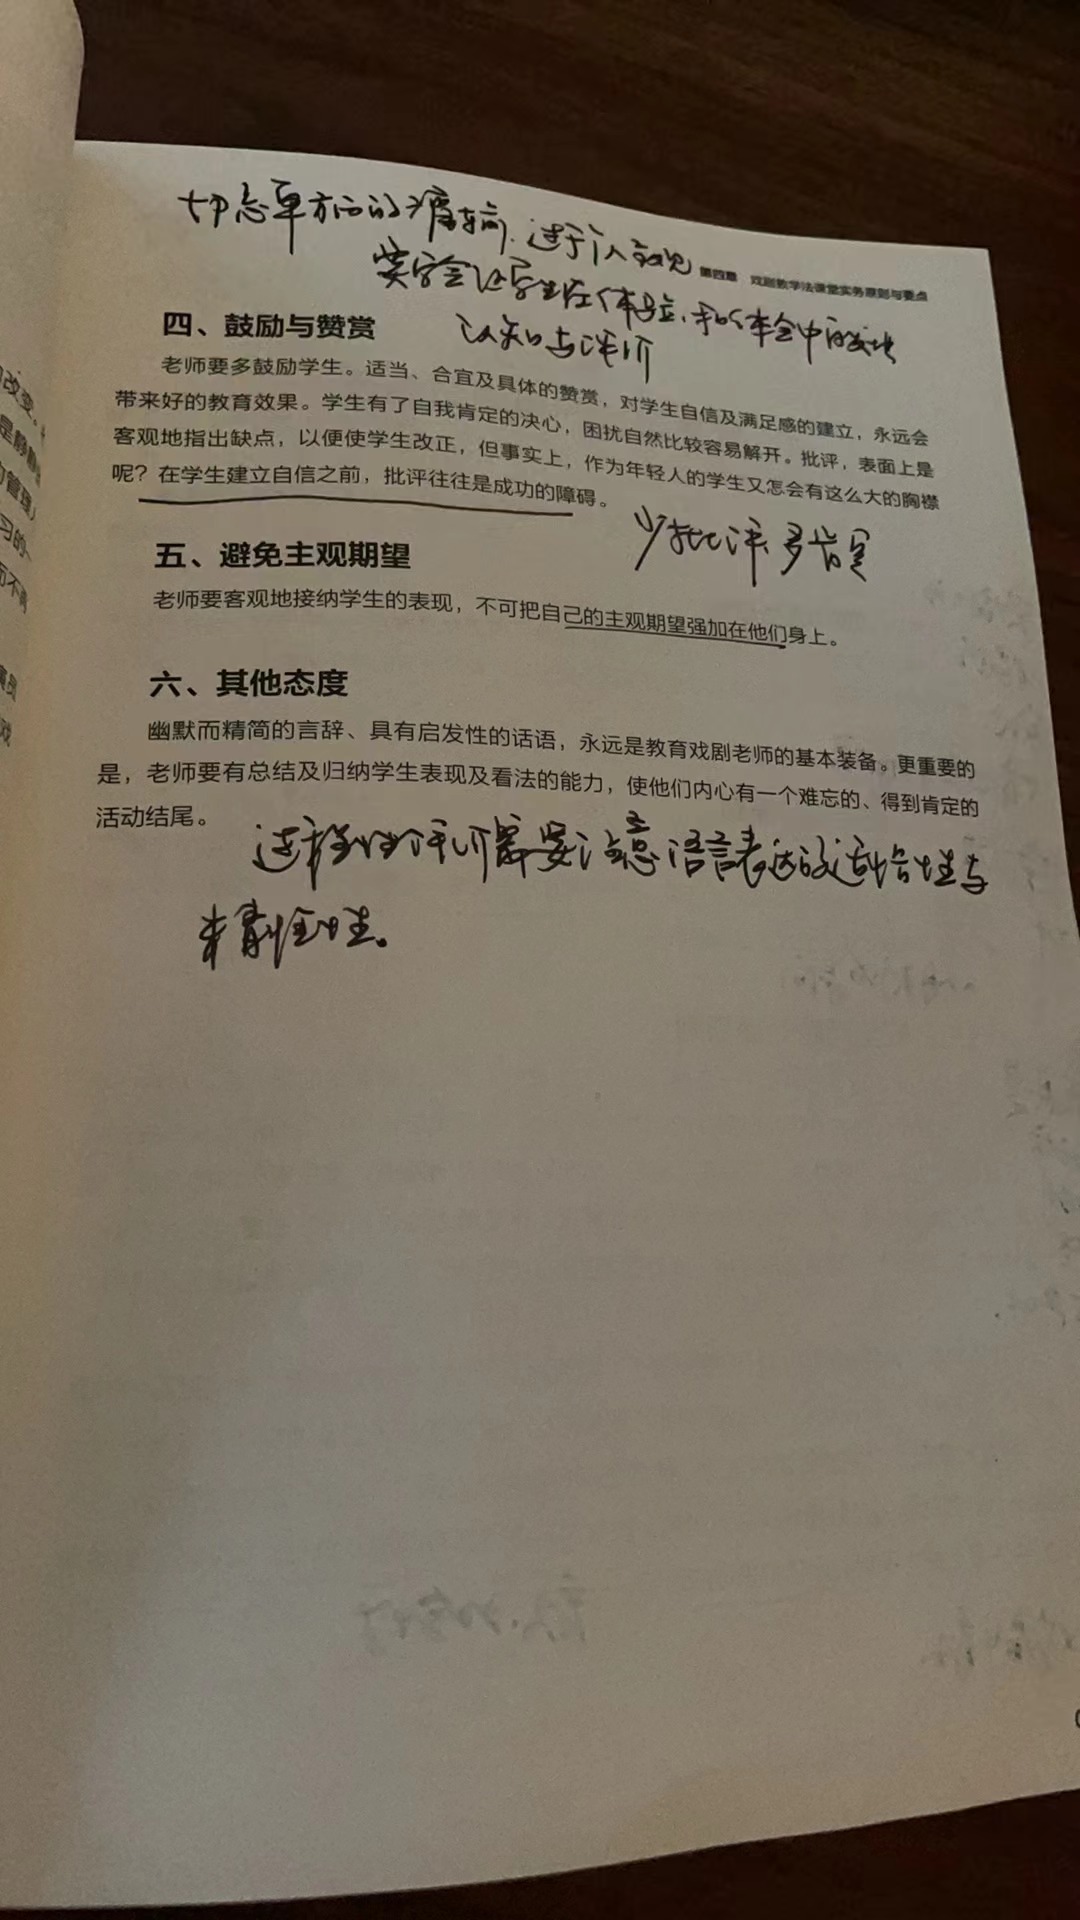 切忌单方面的灌输,过于个人主观
学会让学生在体验和体会中
第四章 戏剧教学法课堂实务原则与要点
认知与评价
四、鼓励与赞赏
老师要多鼓励学生。适当、合宜及具体的赞赏，对学生自信及满足感的建立，永远会
带来好的教育效果。学生有了自我肯定的决心，困扰自然比较容易解开。批评，表面上是
客观地指出缺点，以便使学生改正，但事实上，作为年轻人的学生又怎会有这么大的胸襟
呢？在学生建立自信之前，批评往往是成功的障碍。
少批评、多肯定
五、避免主观期望
老师要客观地接纳学生的表现，不可把自己的主观期望强加在他们身上。
六、其他态度
幽默而精简的言辞、具有启发性的话语，永远是教育戏剧老师的基本装备。更重要的
是，老师要有总结及归纳学生表现及看法的能力，使他们内心有一个难忘的、得到肯定的
活动结尾。
过程性评价需要注意语言表达的适恰性与
精准性。
改变。
是静
管理
习的
而不
演员
戏